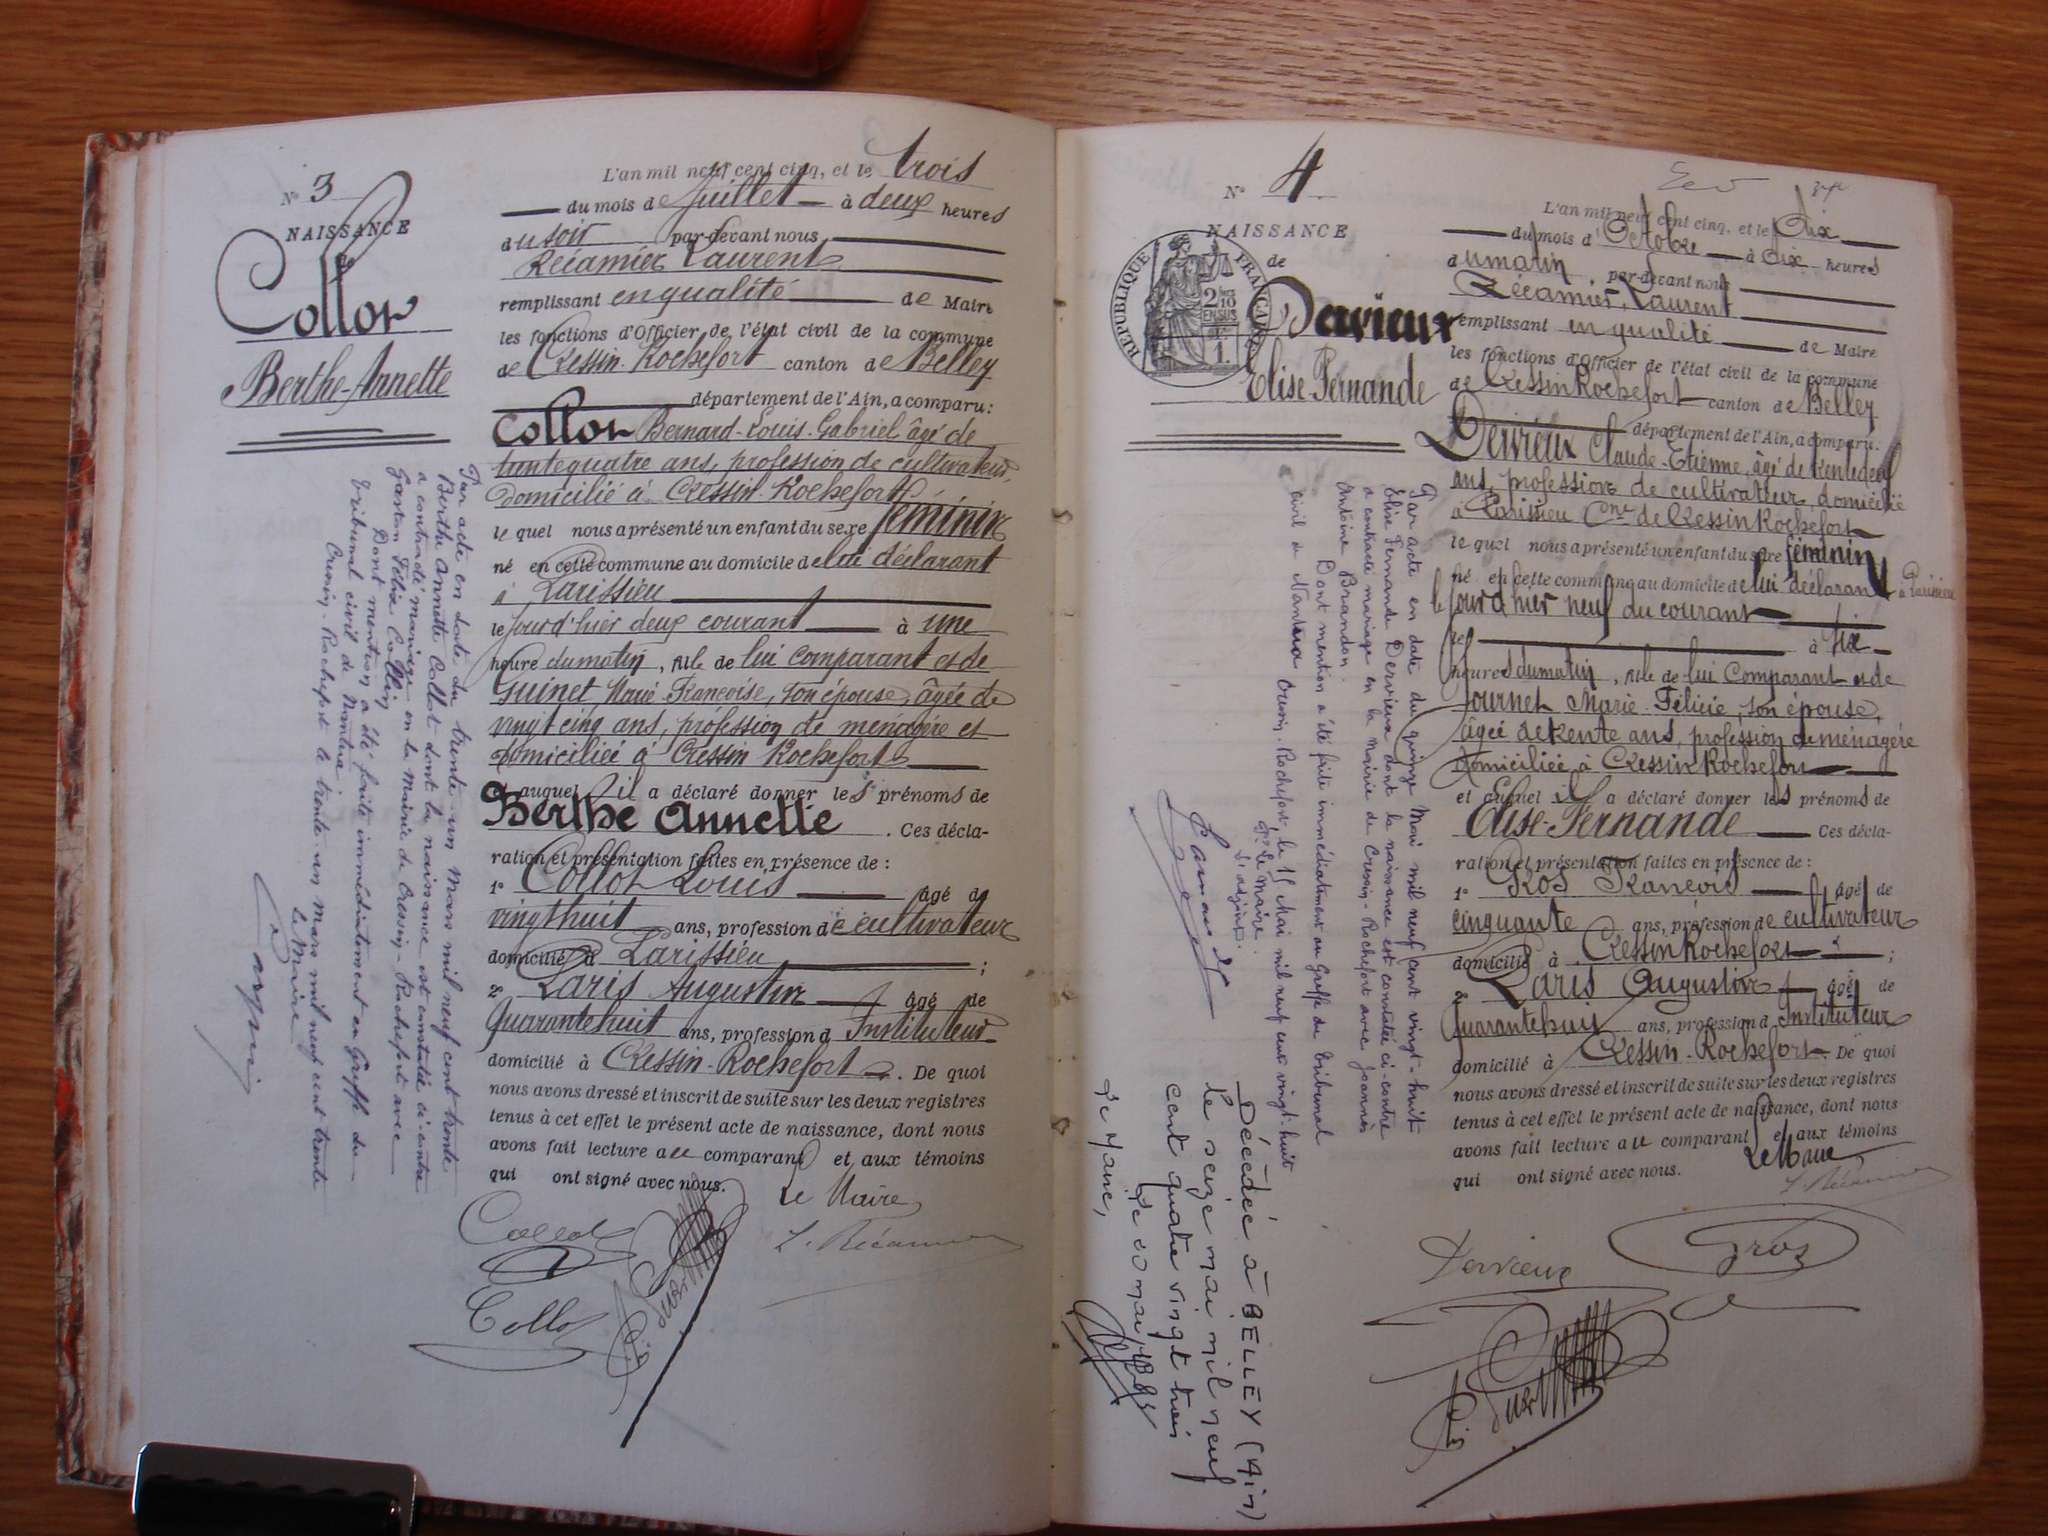 N° 3
NAISSANCE
de
Collot
Berthe-Annette
L'an mil neuf cent cinq, et le trois
du mois de Juillet à deux heures
du soir par-devant nous
Récamier Laurent
remplissant en qualité de Maire
les fonctions d'Officier de l'état civil de la commune
de Cressin-Rochefort canton de Belley
département de l'Ain, a comparu:
Collot Bernard-Louis-Gabriel âgé de
trente quatre ans, profession de cultivateur,
domicilié à Cressin-Rochefort
le quel nous a présenté un enfant du sexe féminin
né en cette commune au domicile de lui déclarant
à Parissieu
le jour d'hier deux courant à une
heure du matin, fille de lui comparant et de
Guinet Marie Françoise, son épouse, âgée de
vingt cinq ans, profession de menagère et
domiciliée à Cressin Rochefort
et auquel il a déclaré donner les prénoms de
Berthe Annette. Ces décla-
ration et présentation faites en présence de :
1° Collot Louis âgé de
vingt huit ans, profession de cultivateur
domicilié à Parissieu ;
2° Paris Augustin âgé de
Quarante huit ans, profession d Instituteur
domicilié à Cressin-Rochefort. De quoi
nous avons dressé et inscrit de suite sur les deux registres
tenus à cet effet le présent acte de naissance, dont nous
avons fait lecture au comparant et aux témoins
qui ont signé avec nous.
Le Maire
L. Récamier
Collot
Collot
Par acte en date du trente-un Mars mil neuf cent trente
Berthe Annette Collot dont la naissance est constatée ci-contre
a contracté mariage en la Mairie de Cressin-Rochefort avec
Gaston Félix Collin
Dont mention a été faite immédiatement au Greffe du
tribunal civil de Nantua
Cressin-Rochefort le trente-un mars mil neuf cent trente
Le Maire
N° 4
NAISSANCE
de
RÉPUBLIQUE FRANÇAISE
2/10
EN SUS
1.
Dervieux
Elise-Fernande
L'an mil neuf cent cinq, et le dix
du mois d'Octobre à dix heures
du matin par-devant nous
Récamier, Laurent
remplissant en qualité de Maire
les fonctions d'Officier de l'état civil de la commune
de Cressin Rochefort canton de Belley
département de l'Ain, a comparu:
Dervieux Claude-Etienne, âgé de
ans, profession de cultivateur, domicilié
à Parissieu Cne de Cressin Rochefort
le quel nous a présenté un enfant du sexe féminin
né en cette commune au domicile de lui déclarant à Parissieu
le jour d'hier neuf du courant
le à six
heures du matin, fille de lui Comparant et de
Journet Marie-Félicie, son épouse,
âgée de trente ans, profession de ménagère
domiciliée à Cressin Rochefort
et auquel il a déclaré donner les prénoms de
Elise-Fernande Ces décla-
ration et présentation faites en présence de :
1° Gros François âgé de
cinquante ans, profession de cultivateur
domicilié à Cressin Rochefort ;
2° Paris Augustin âgé de
Quarante huit ans, profession d Instituteur
domicilié à Cressin-Rochefort. De quoi
nous avons dressé et inscrit de suite sur les deux registres
tenus à cet effet le présent acte de naissance, dont nous
avons fait lecture au comparant et aux témoins
qui ont signé avec nous.
Le Maire
L. Récamier
Dervieux
Gros
Par acte en date du quinze Mai mil neuf cent vingt-huit
Elise Fernande Dervieux dont la naissance est constatée ci-contre
a contracté mariage en la Mairie de Cressin-Rochefort avec Joannès
Antoine Brandon.
Dont mention a été faite immédiatement au Greffe du tribunal
civil de Nantua Cressin-Rochefort, le 15 Mai mil neuf cent vingt-huit
Pr Le Maire
L'adjoint.
Décédée à BELLEY (Ain)
le seize mai mil neuf
cent quatre vingt trois
Le Maire,